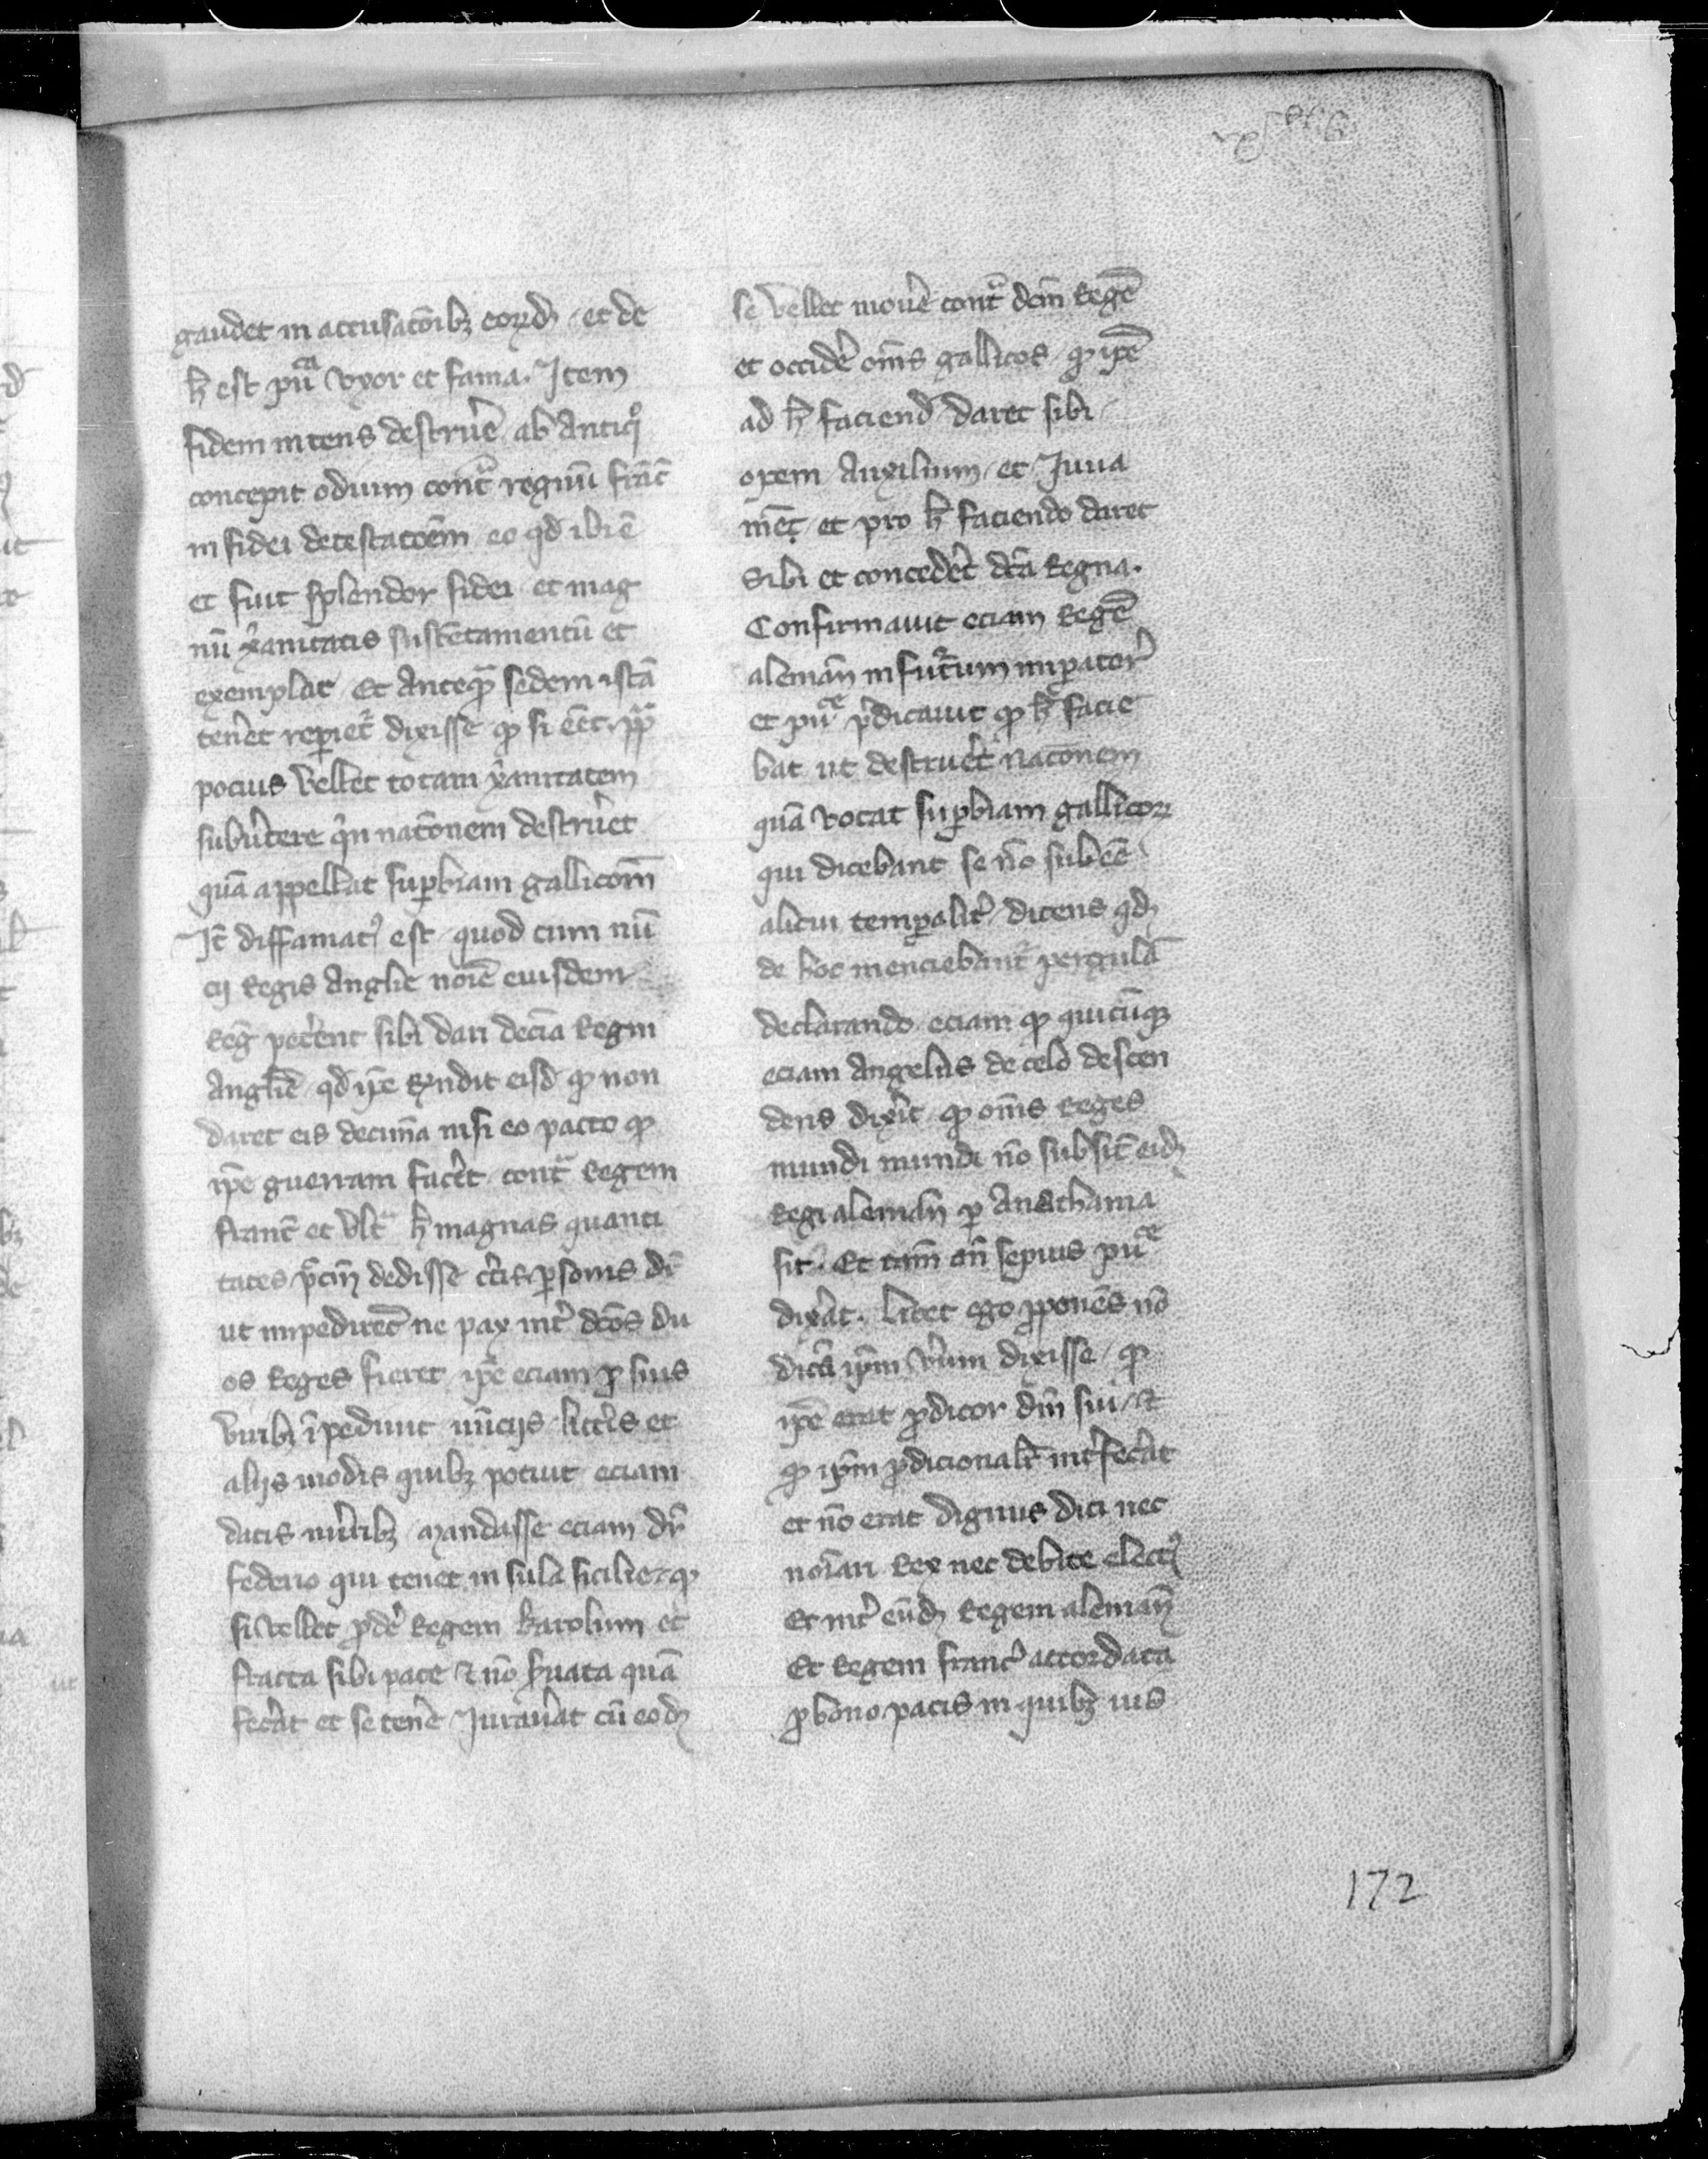 gaudet in accusacōibꝫ eorūdꝫ et de
h̄ est pu̅ca voxor et fama. Item
fidem intens destrue̅ ab antiqͦ
concepit odium cont̅ regnū franc̅
in fidei detestacōem eo qd̛ ibi ē
et fuit splendor fidei et mag
nū xp̄anitatis sustētamentū et
exemplar Et anteqͣ sedem istā
tener̛et rep̱iet̛ dixisse qͥ si eēt p̱p̱ͣ
pocius vellet totam xp̄anitatem
subưtere qͥn nacōnem destrue̛t
quā appellat sup̱biam gallicoꝝ
It̄ diffamatꝰ est quod cum nū
cij Regis anglie noīe eiusdem
Reḡ pete̛nt sibi dari decīa Regni
anglie qd̛ ip̄e Rn̄dit eisd̛ qͥ non
daret eis decima nisi eo pacto qͥ
ip̄e guerram face̛t contͣ Regem
franc̄ et vltͣ h̄ magnas quanti
tates p̄cūi dedisse ce̛tis p̱sonis d̄r
ut impediret̄ ne pax int̛ dc̄os du
os Reges fieret ip̄e eciam p̱ suis
viribꝫ īpediuit nūcijs litte̛is et
alijs modis quibꝫ potuit eciam
datis mune̛ibꝫ mandasse eciam d̄r
federico qui tenet insulā sicilie qͥ
si vellet p̱de̛ Regem karolum et
fracta sibi pace ⁊ nō s̛uata quā
fece̛at et se tene̛ Juraue̛at cū eodꝫ
se vellet moue̛ contͣ dc̄m Regē
et occide̛ om̄s gallicos qͥ ip̄e
ad h̄ faciend̛ daret sibi
opem auxilium et Juua
mēt̄ et pro h̄ faciendo daret
Sibi et concede̛t dc̄a Regna.
Confirmauit eciam Regē
alemān in futurum imp̱ator̛
et pu̅ce p̱dicauit qͥ h̄ facie
bat ut destrue̛t nacōnem
quā vocat sup̱biam gallicoꝝ
qui dicebant se nō subeē
alicui temp̱alit̛ dicens qdꝫ
de hoc menciebant̛ per gulā
declarando eciam qͥ quicūqꝫ
eciam angelus de celo descen
dens dixe̛it qͥ om̄s Reges
mundi mundi nō subsit̄ eidꝫ
Regi alemān p̱ anathama
sit. Et tam̄ an̄ sepius pu̅ce
dixe̛at. licet ego p̱ponēs nō
dicā ip̄m ve̛um dixisse qͥ
ip̄e erat p̱dicor dn̄i sui et
qͥ ip̄m p̱dicionalit̄ int̛fece̛at
et nō erat dignus dici nec
noīari Rex nec debite electꝰ
Et int̛ eūdꝫ Regem alemān
Et Regem franc̄ accordata
p̱ bono pacis in quibꝫ ius
172